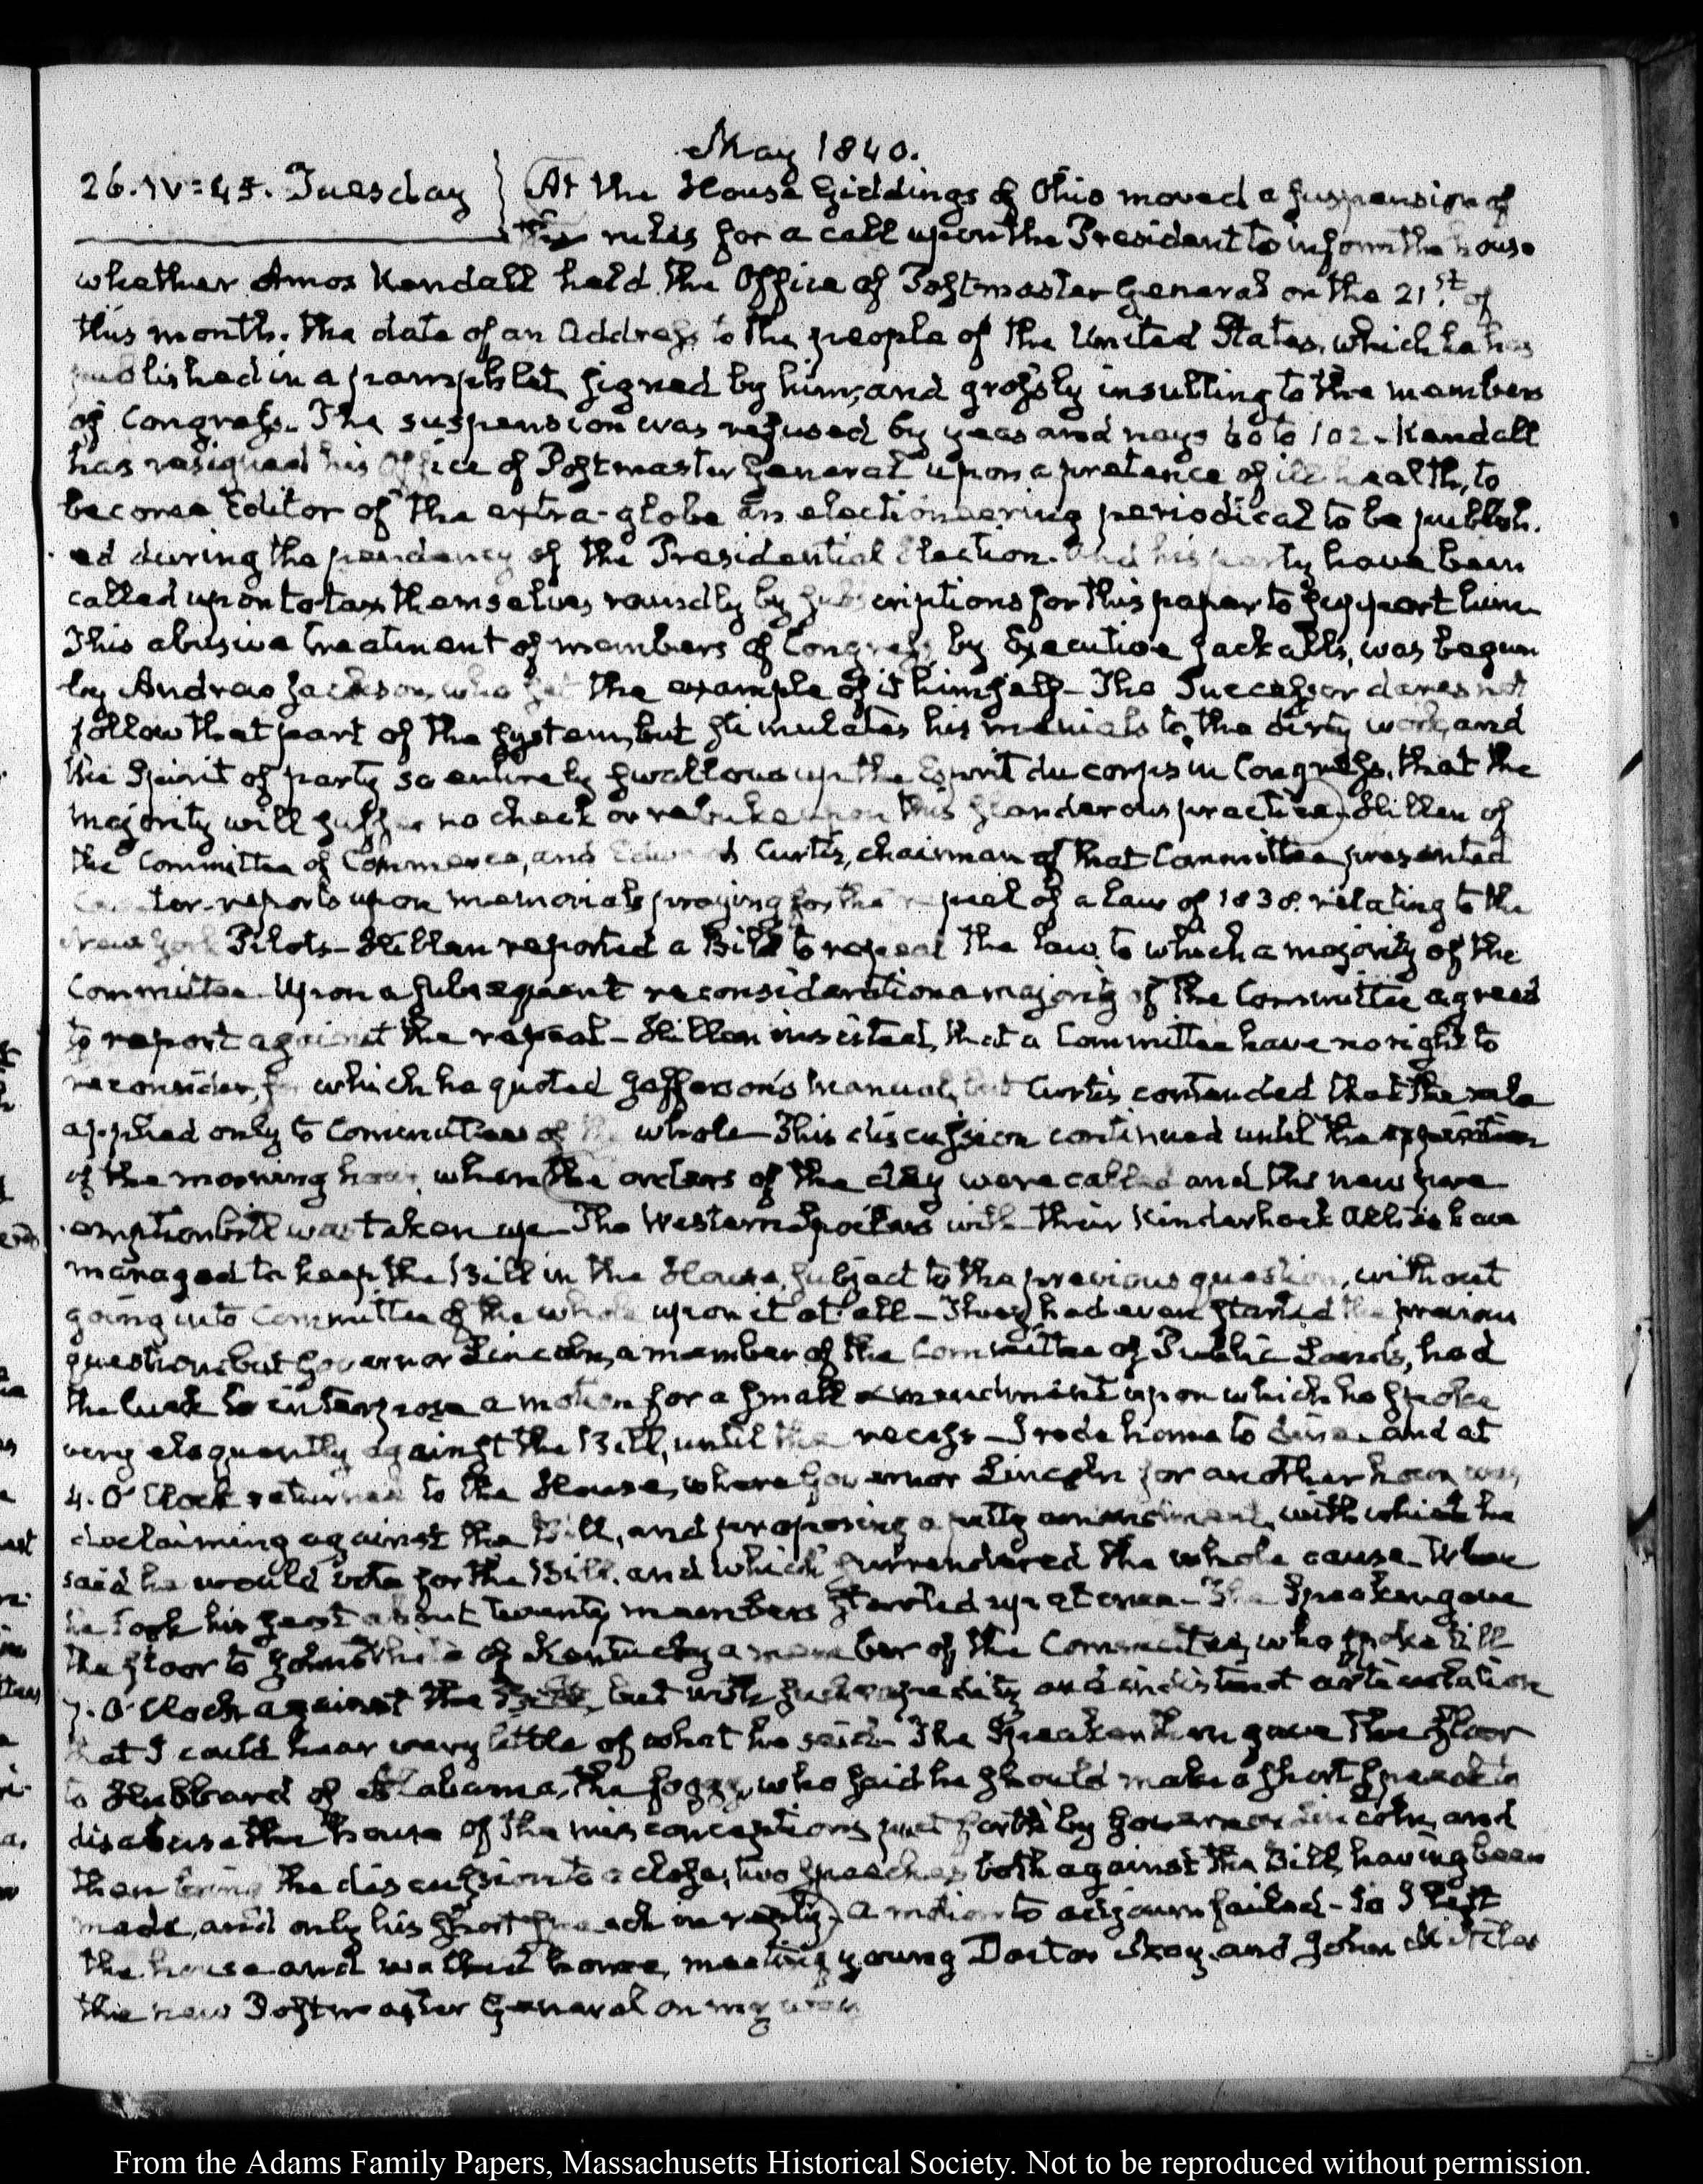 May 1840.
26. IV:45. Tuesday At the House Giddings of Ohio moved a suspension of
the rules for a call upon the President to inform the house
whether Amos Kendall held the Office of Postmaster General on the 21st. of
this month. the date of an Address to the people of the United States, which he has
published in a pamphlet, signed by him, and grossly insulting to the members
of Congress. The suspension was refused by yeas and nays 60 to 102 - Kendall
has resigned his Office of Postmaster General upon a pretence of ill health, to
become Editor of the extra-globe an electioneering periodical to be publish-
ed during the pendency of the Presidential Election. And his party have been
called upon to tax themselves roundly by subscriptions for this paper to support him
This abusive treatment of members of Congress, by Executive jackalls, was begun
by Andrew Jackson, who set the example of it himself - The Successor dares not
follow that part of the system, but stimulates his menials to the dirty work, and
the Spirit of party so entirely swallows up the Esprit du corps in Congress, that the
majority will suffer no check or rebuke upon this slanderous practice - Hillen of
the Committee of Commerce, and Edward Curtis, chairman of that Committee presented
Counter-reports upon memorials praying for the repeal of a law of 1838. relating to the
New York Pilots - Hillen reported a Bill to repeal the law, to which a majority of the
Committee Upon a subsequent reconsideration a majority of the Committee agreed
to report against the repeal - Hillen insisted, that a Committee have no right to
reconsider, for which he quoted Jefferson's Manual, but Curtis contended that the rule
applied only to Committees of the whole This discussion continued until the expiration
of the morning hour, when the orders of the day were called and the new pre
emption bill was taken up - The Western Spoilers with their Kinderhook Allies have
managed to keep the Bill in the House, subject to the previous question, without
going into Committee of the whole upon it at all - They had even started the previous
question, but Governor Lincoln, a member of the Committee of Public Lands, had
the luck to interpose a motion for a small amendment upon which he spoke
very eloquently against the Bill, until the recess - I rode home to dine and at
4. O'Clock returned to the House, where Governor Lincoln for another hour was
declaiming against the Bill, and proposing a petty amendment, with which he
said he would vote for the Bill. and which surrendered the whole cause - When
he took his seat about twenty members started up at once - The Speaker gave
the floor to John White of Kentucky a member of the Committee, who spoke till
7. O'Clock against the Bill, but with such rapidity and indistinct articulation
that I could hear very little of what he said - The Speaker then gave the floor
to Hubbard of Alabama, the foggy, who said he should make a short speech to
disabuse the house of the misconceptions put forth by Governor Lincoln, and
then bring the discussion to a close, two speeches both against the Bill, having been
made, and only his short speech in reply. a motion to adjourn failed - So I left
the house and walked home, meeting young Doctor May and John M Niles
the new Postmaster General on my way
From the Adams Family Papers, Massachusetts Historical Society. Not to be reproduced without permission.